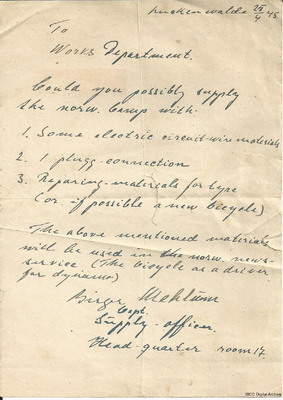 Luckenwalde 25/4 45
To
Works Department.
Could you possibly supply
the norw. Camp with.
1. Some electric circuit-wire materials
2. 1 plugg-connection
3. Reparing-materials for tyre
(or if possible a new bicycle)
The above mentioned materials
will be used in the norw. news-
service (The bicycle as a driver
for dynamo)
Birger
Capt.
Supply-officer.
Head-quarter room 17.
IBCC Digital Archive